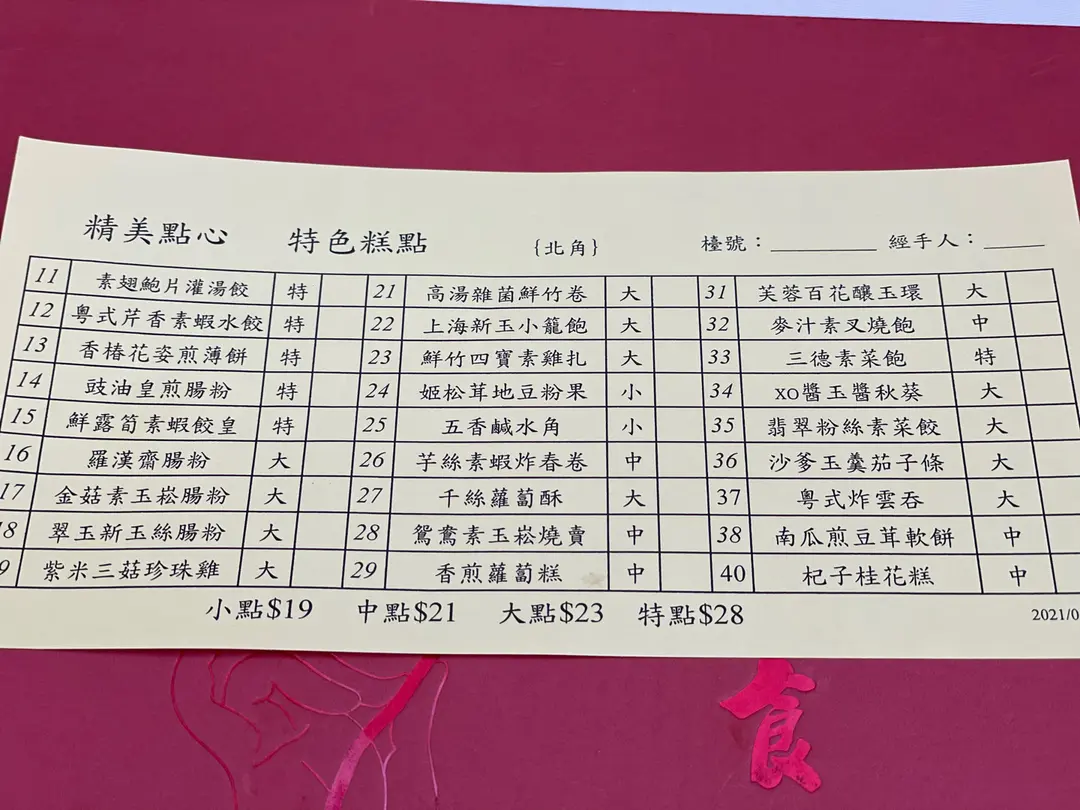 精美點心 特色糕點 {北角} 檯號：________ 經手人：_____
11 素翅鮑片灌湯餃 特 21 高湯雜菌鮮竹卷 大 31 芙蓉百花釀玉環 大
12 粵式芹香素蝦水餃 特 22 上海新玉小籠飽 大 32 麥汁素叉燒飽 中
13 香椿花姿煎薄餅 特 23 鮮竹四寶素雞扎 大 33 三德素菜飽 特
14 豉油皇煎腸粉 特 24 姬松茸地豆粉果 小 34 XO醬玉醬秋葵 大
15 鮮露筍素蝦餃皇 特 25 五香鹹水角 小 35 翡翠粉絲素菜餃 大
16 羅漢齋腸粉 大 26 芋絲素蝦炸春卷 中 36 沙爹玉羹茄子條 大
17 金菇素玉崧腸粉 大 27 千絲蘿蔔酥 大 37 粵式炸雲吞 大
8 翠玉新玉絲腸粉 大 28 鴛鴦素玉崧燒賣 中 38 南瓜煎豆茸軟餅 中
9 紫米三菇珍珠雞 大 29 香煎蘿蔔糕 中 40 杞子桂花糕 中
小點$19 中點$21 大點$23 特點$28
2021/0
食